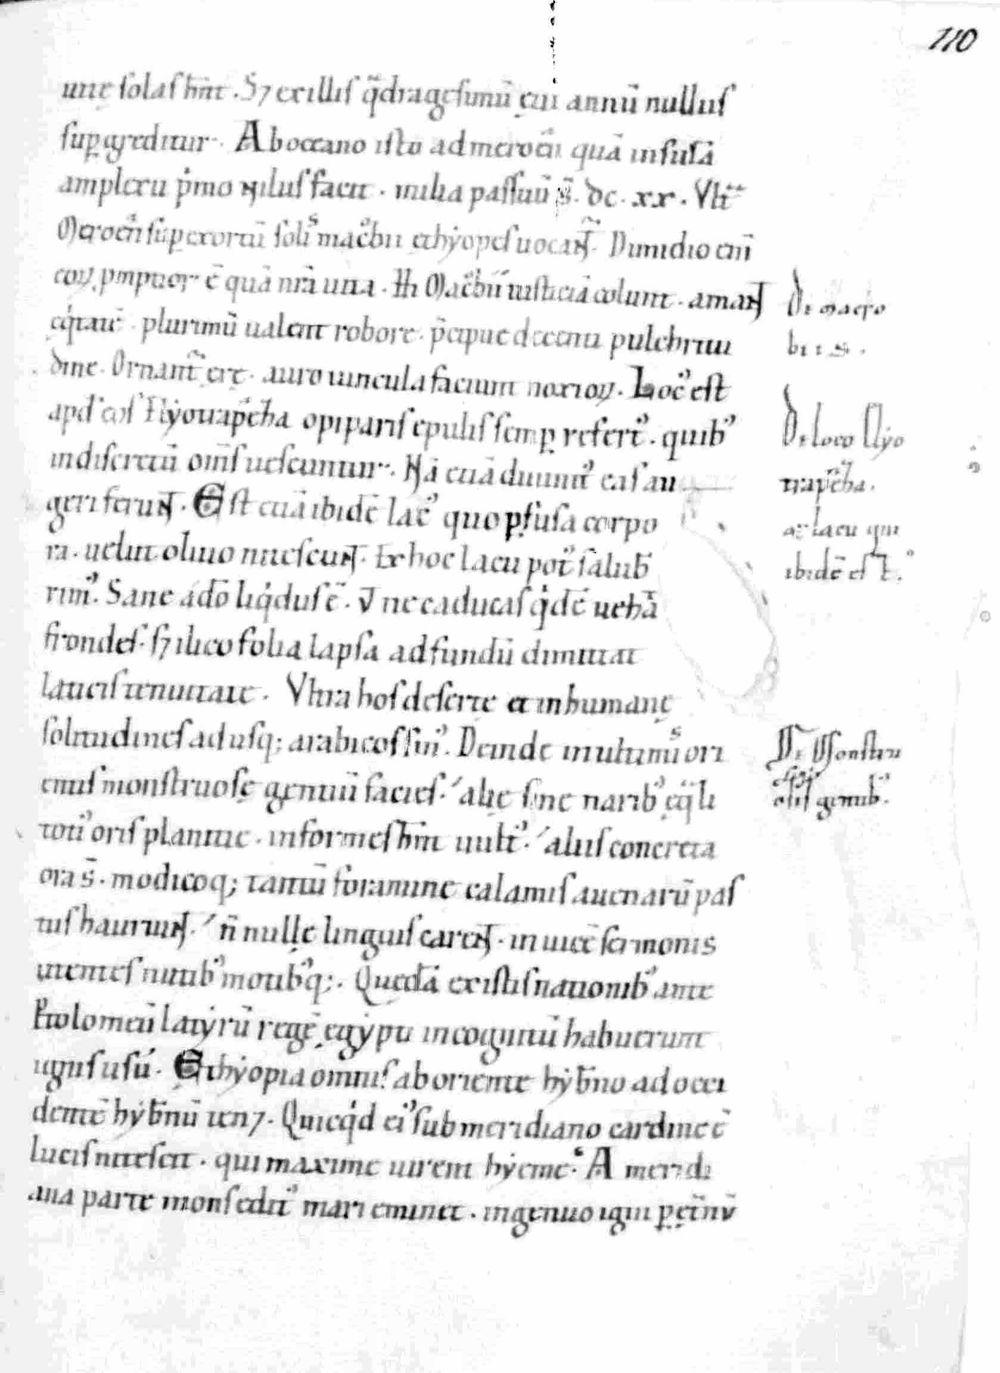 110
uitę solas hn̄t. S; ex illis q̄dragesimū ęui annū nullus
sup̱greditur. Ab oceano isto ad meroēn quā insulā
amplexu p̍mo nilus facit. milia passuū s̄. dc. xx. Vlt̄
Meroēn sup̱ exortū solis macͦbii ethẏopes uocant̄. Dimidio eni
 ē quā nr̄a uita. Hi Macͦbii iusticiā colunt. amant
eq̍tatē. plurimū ualent robore. p̄cipue decenti pulchritu
dine. Ornant̄ ęre. auro uincula faciunt noxioꝝ. Locꝰ est
apd̍ eos opiparis epulis semp̱ refertꝰ. quibꝰ
indiscretū om̄s uescuntur. Nā etiā diuinitꝰ eas au
geri ferunt. Est etiā ibidē lacꝰ quo p̱fusa corpo
ra. uelut oliuo nitescunt. Ex hoc lacu potꝰ salub̄
rimꝰ. Sane adō liq̍dus ē. v̄ ne caducas q̍dē uehā
frondes. s; ilico folia lapsa ad fundū dimittat
laticis tenuitate. Vltra hos deserte et inhumanę
solitudines ad usq; arabicos sinꝰ. Deinde in ultimis ori
entis monstruosę gentiū facies. alię sine naribꝰ eq̄li
totiꝰ oris planitie. informes hn̄t uultꝰ. aliis concreta
ora s̄. modicoq; tantū foramine calamis auenarū pas
tus hauriunt. n̄ nullę linguis carent. in uicē sermonis
utentes nutibꝰ motibꝰq;. Quedā ex istis nationibꝰ ante
Ptolomeū latẏrū regē ęgẏpti incognitū habuerunt
ignis usū. Ethẏopia omnis ab oriente hẏb̄no ad occi
dentē hẏb̄nū ten;. Quicq̍d eiꝰ sub meridiano cardine ē
lucis nitescit. qui maxime uiret hẏeme. A meridi
ana parte mons editꝰ mari eminet. ingenuo igni p̱
De macro
biis.
De loco Elyo
trapecha.
ac lacu qui
ibidē est.
De Monstru
osis gentibꝰ.